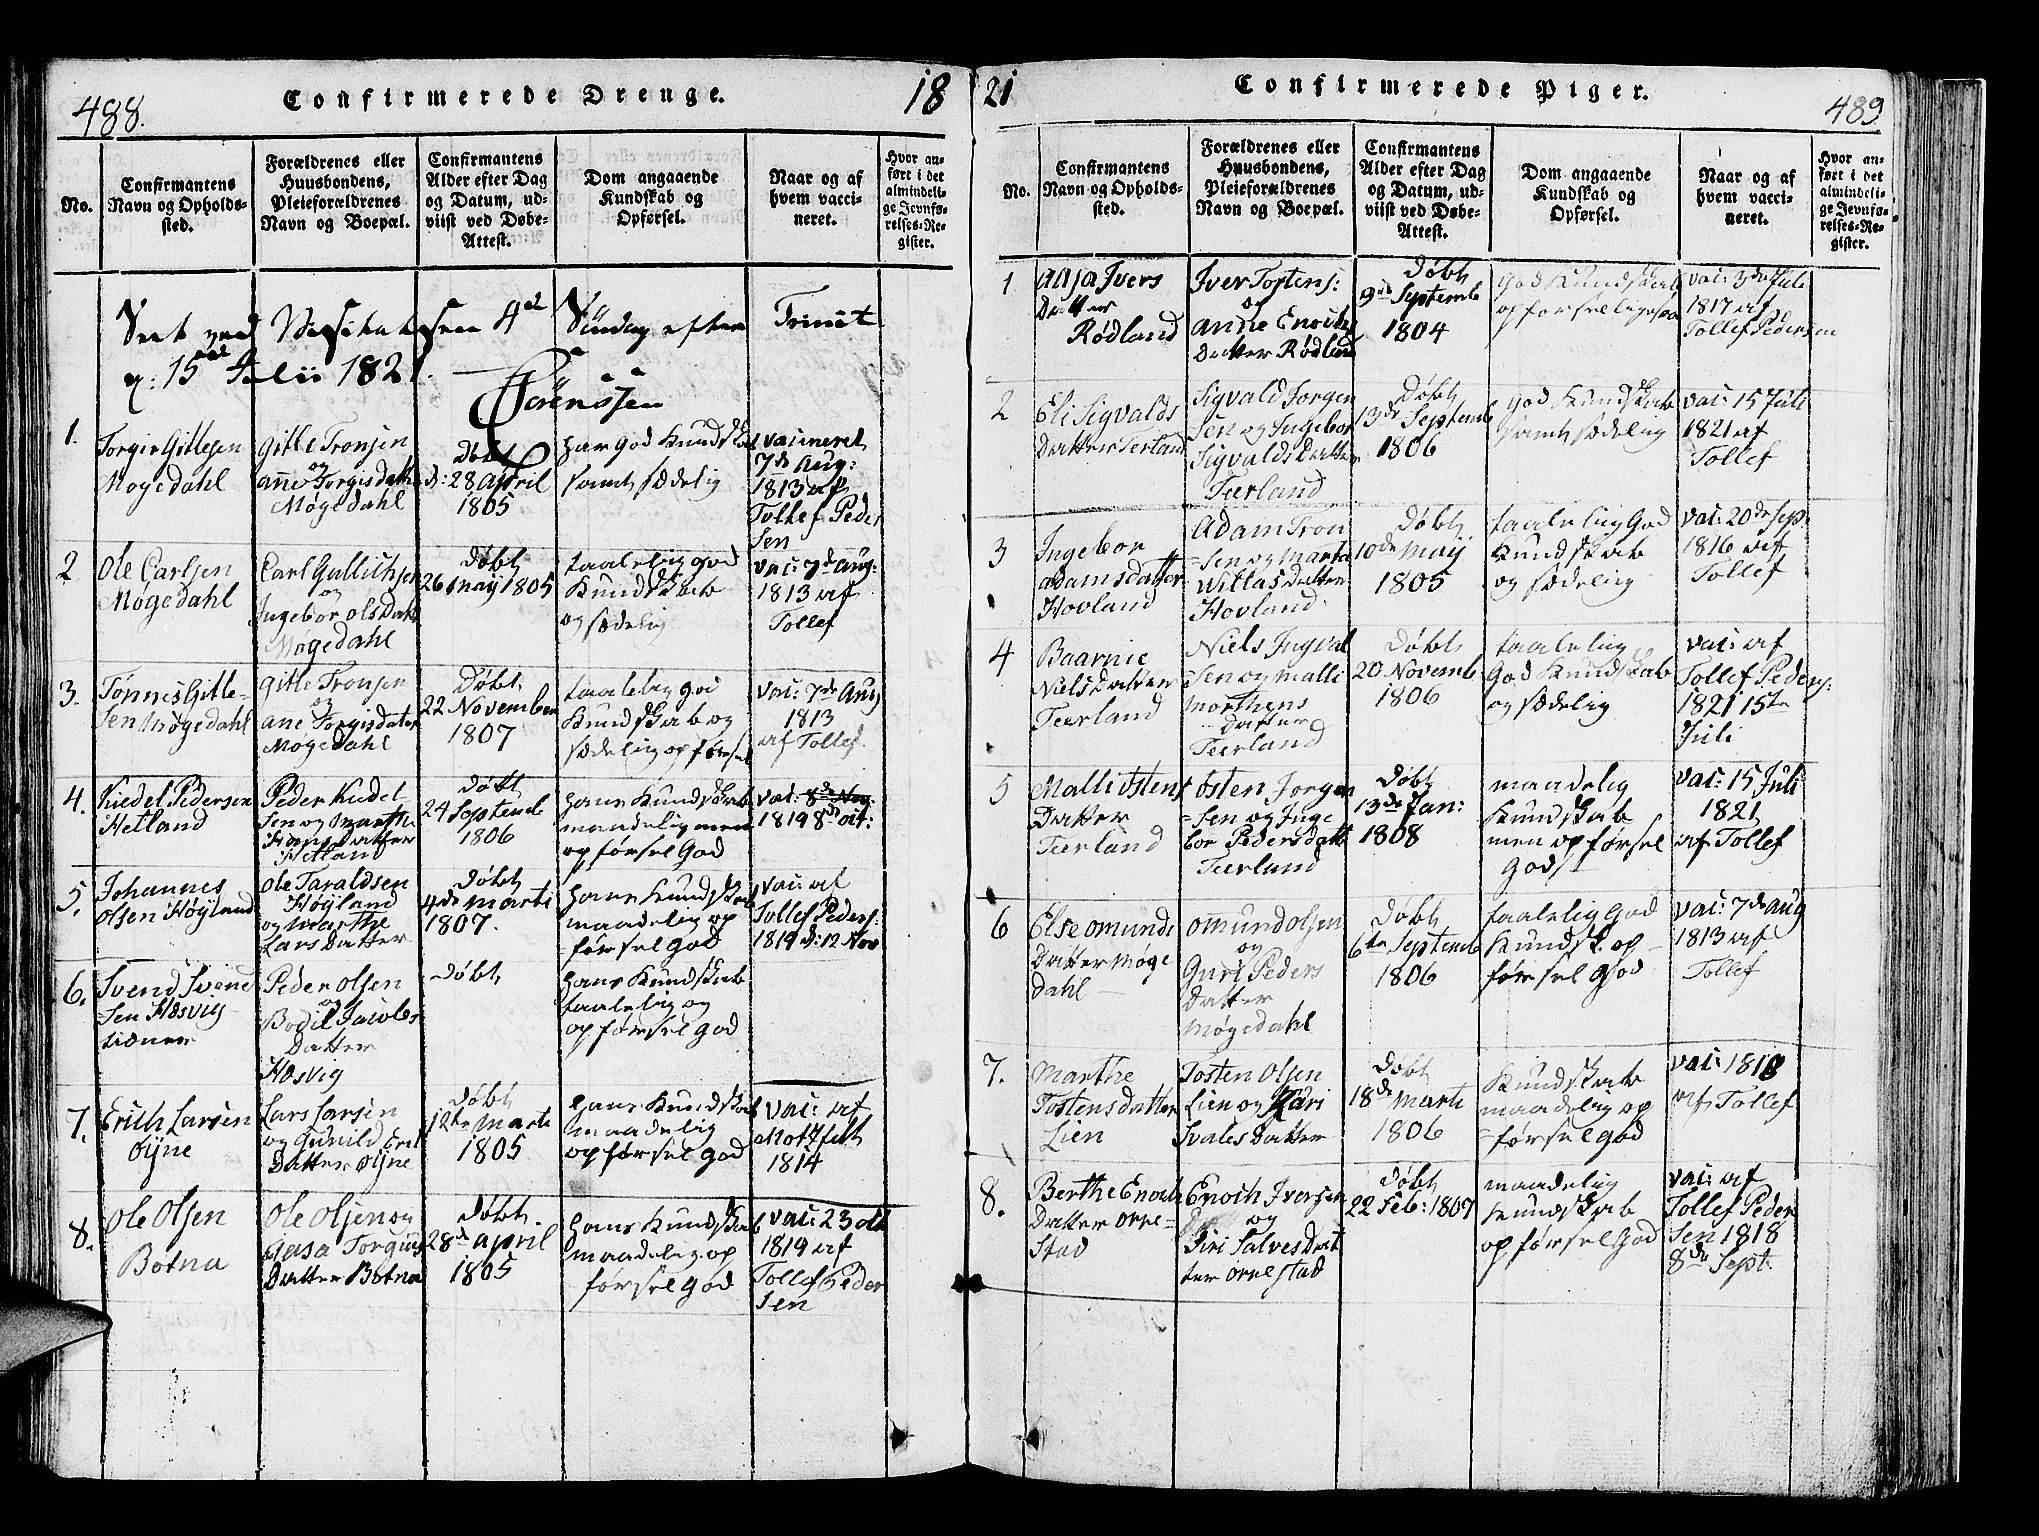 488.
Confirmerede Drenge.
18
No.
Confirmantens
Navn og Opholds-
sted.
Forældrenes eller
Huusbondens,
Pleieforældrenes
Navn og Boepæl.
Confirmantens
Alder efter Dag
og Datum, ud-
viist ved Døbe-
Attest.
Dom angaaende
Kundskab og
Opførsel.
Naar og af
hvem vacci-
neret.
Hvor an-
ført i det
almindeli-
ge Jevnfø-
relses-Re-
gister.
4de Søndag efter Trinit
15de Julii 1821.
Sörenssen
1.
Torgir Gitlesen
Møgedahl
Gitle Tronsen
og
anne Torgisdatt
Møgedahl
Døbt
d: 28 april
1805
har god Kundskab
samt sædelig
vacineret
7de Aug:
1813 af
Tollef Peder
sen
2
Ole Carlsen
Møgedahl
Carl Gullichsen
og
Ingebor olsdatt
Møgedahl
Døbt
26 maij 1805
taalelig god
Kundskab
og sædelig
vac: 7de aug:
1813 af
Tollef
3.
Tønnes Gitle-
sen Møgedahl
Gitle Tronsen
og
ane Torgisdater
Møgedahl
Døbt
22 November
1807
taalelig god
Kundskab og
sædelig opførsel
vac: 7de Aug
1813
af Tollef
4.
Kiedel Pedersen
Hetland
Peder Kiedel
sen og marthe
Hansdatter
Hetland
Døbt
24 Septemb
1806
hans Kundskab
maadelig men
opførsel God
vac: 8de Nov:
1819 8de oct:
5.
Johannes
Olsen Høyland
Ole Taraldsen
Høyland
og marthe
Lars Datter
Døbt
4de marti
1807.
hans Kundskab
maadelig op
førsel god
vac: af
Tollef Peders:
1819 d: 12 Nov
6.
Svend Svend
sen Hæsvig
tiener
Peder olsen
og
Bodil Jacobs
Datter
Hæsvig
Døbt
hans Kundskab
taalelig og
opførsel god
7.
Erich Larsen
Øijne
Lars Larsen
og Gunild Eric
Datter Øijne
Døbt
12te marti
1805
hans Kundskab
maadelig
opførsel god
vac: af
Motzfelt
1814
8.
Ole Olsen
Botna
Ole Olsen og
Aasa Torgius
Datter Botna
Døbt
28de april
1805
hans Kundskab
maadelig op
førsel god
vac: 23 oct
1819 af
Tollef Peder
sen
21
Confirmerede Piger.
489
No.
Confirmantens
Navn og Opholds-
sted.
Forældrenes eller
Huusbondens,
Pleieforældrenes
Navn og Boepæl.
Confirmantens
Alder efter Dag
og Datum, ud-
viist ved Døbe-
Attest.
Dom angaaende
Kundskab og
Opførsel.
Naar og af
hvem vacci-
neret.
Hvor an-
ført i det
almindeli-
ge Jevnfø-
relses-Re-
gister.
1
Ivers
Datter
Rødland
Iver Tostens:
og
anne Enochs
Datter Rødland
Døbt
9de Septemb
1804
God Kundskab
opførsel ligesaa
vac: 3de Juli
1817 af
Tollef Pedersen
2
Eli Sigvalds
Datter Terland
Sigvald Jorgen
sen og Ingebor
Sigvalds Datter
Teerland
Døbt
13de Septemb
1806
God Kundskab
samt sædelig
vac: 15 Juli
1821 af
Tollef
3
Ingebor
adamsdatter
Hovland
Adam Tron
sen og Marta
Willas Datter
Hovland
Døbt
10de Maij
1805
taalelig God
Kundskab
og sædelig
vac: 20de sep:
1816 af
Tollef
4
Baarnie
Niels Datter
Teerland
Niels Ingval
sen og Malli
Morthens
Datter
Teerland
Døbt
20 Novemb
1806
taalelig
God Kundskab
og sædelig
vac: af
Tollef Peders:
1821 15te
Juli
5
Malli Østens
Datter
Teerland
Østen Jorgen
sen og Inge
bor Pedersdatt
Teerland
Døbt
13de Jan:
1808
maadelig
Kundskab
men opførsel
God
vac: 15 Juli
1821
af Tollef
6
Else omunds
Datter Møge
dahl
omund olsen
og
Guri Peders
Datter
Møgedahl
Døbt
6te Septemb
1806
taalelig God
Kundsk: op
førsel God
vac: 7de aug
1813 af
Tollef
7.
Marthe
Tostens datter
Lien
Tosten Olsen
Lien og Kari
Ivales Datter
Døbt
18de marti
1806
Kundskab
maadelig op
førsel god
vac: 1818
af Tollef
8.
Berthe Enochs
Datter Orre-
Stad
Enoch Iversen
og
Siri Salves Dat
ter Orrestad
Døbt
22 Feb: 1807
maadelig
Kundskab
opførsel God
vac: af
Tollef Peder
sen 1818
8de Sept.